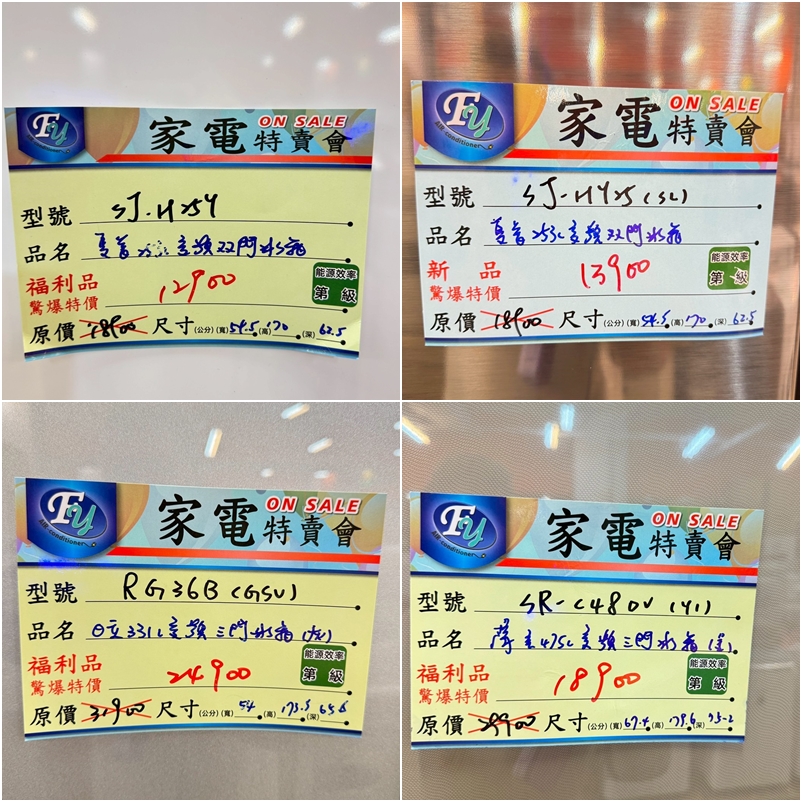 Fy
Air Conditioner
家電特賣會
ON SALE
型號 SJ-HY25
品名 夏普253L變頻双門冰箱
福利品
驚爆特價 12900
能源效率
第 級
原價 18900 尺寸(公分)(寬)54.5(高)170(深)62.5
Fy
Air Conditioner
家電特賣會
ON SALE
型號 SJ-HY25(SL)
品名 夏普253L變頻双門冰箱
新品
驚爆特價 13900
能源效率
第 級
原價 18900 尺寸(公分)(寬)54.5(高)170(深)62.5
Fy
Air Conditioner
家電特賣會
ON SALE
型號 RG36B(GSV)
品名 日立331L變頻三門冰箱(左)
福利品
驚爆特價 24900
能源效率
第 級
原價 31900 尺寸(公分)(寬)54(高)173.5(深)65.5
Fy
Air Conditioner
家電特賣會
ON SALE
型號 SR-C480V(Y1)
品名 聲寶475L變頻三門冰箱
福利品
驚爆特價 18900
能源效率
第 級
原價 29900 尺寸(公分)(寬)67.4(高)179.6(深)75.2